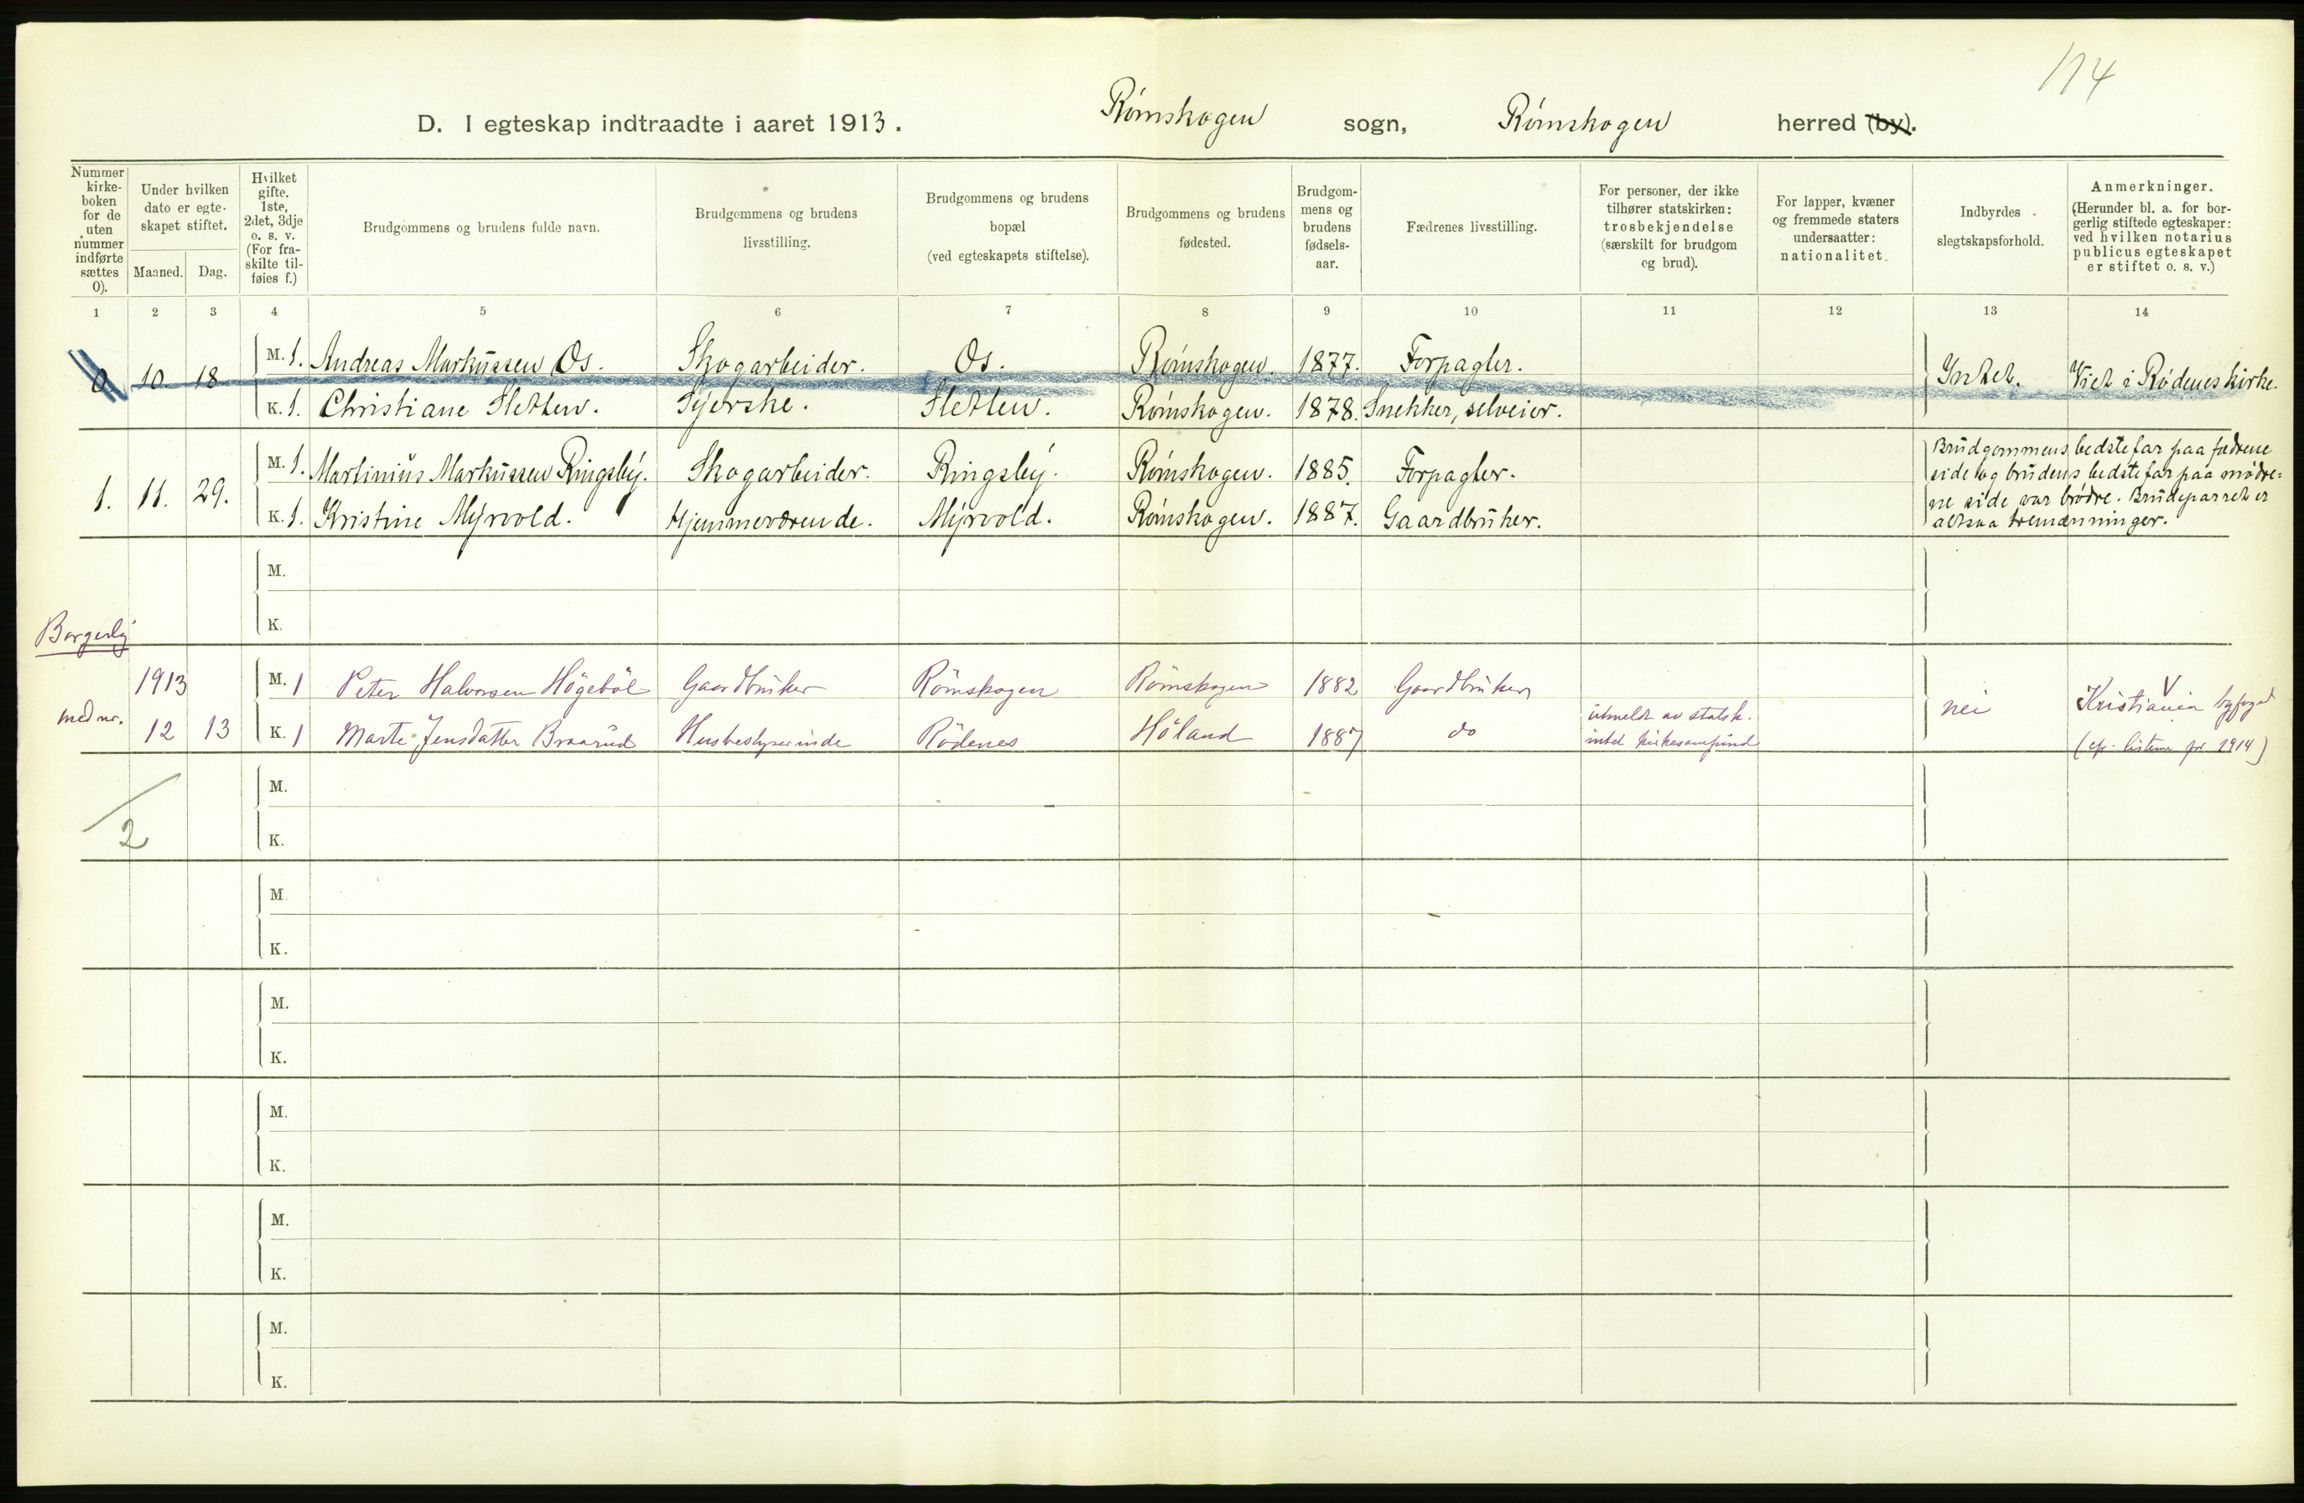 114
D. I egteskap indtraadte i aaret 1913. Rømskogen sogn, Rømskogen herred (by).
Nummer kirke-boken for de uten nummer indførte sættes 0).
Under hvilken dato er egte-skapet stiftet.
Maaned. Dag.
Hvilket gifte. 1ste, 2det, 3dje o. s. v. (For fra-skilte til-føies f.)
Brudgommens og brudens fulde navn.
Brudgommens og brudens livsstilling.
Brudgommens og brudens bopæl (ved egteskapets stiftelse).
Brudgommens og brudens fødested.
Brudgom-mens og brudens fødsels-aar.
Fædrenes livsstilling.
For personer, der ikke tilhører statskirken: trosbekjendelse (særskilt for brudgom og brud).
For lapper, kvæner og fremmede staters undersaatter: nationalitet.
Indbyrdes slegtskapsforhold.
Anmerkninger. (Herunder bl. a. for bor-gerlig stiftede egteskaper: ved hvilken notarius publicus egteskapet er stiftet o. s. v.)
1 2 3 4 5 6 7 8 9 10 11 12 13 14
M. 1. Andreas Markussen Os. Skogarbeider. Os. Rømskogen. 1877. Forpagter.
0 10 18 Intet. Viet i Rødenes kirke.
K. 1. Christiane Sletten. Syerske. Sletten. Rømskogen. 1878. Snekker, selveier.
M. 1. Martinius Markussen Ringsby. Skogarbeider. Ringsby. Rømskogen. 1885. Forpagter.
1. 11. 29.
K. 1. Kristine Myrvold. Hjemmeværende. Myrvold. Rømskogen. 1887. Gaardbruker.
Brudgommens bedstefar paa fædrene
side og brudens bedstefar paa mødre-
ne side var brødre. Brudeparret er
altsaa tremenninger.
M.
K.
Borgerlig
1913 M. 1 Peter Halvorsen Högeböl Gaardbruker Römskogen Römskogen 1882 Gaardbruker
med nr. 12 13 K. 1 Marte Jensdatter Braarud Husbestyrerinde Rödenes Höland 1887 do
utmeldt av statsk.
intet kirkesamfund
nei
V
Kristiania byfogd
(cfr. listene for 1914)
M.
2
K.
M.
K.
M.
K.
M.
K.
M.
K.
M.
K.